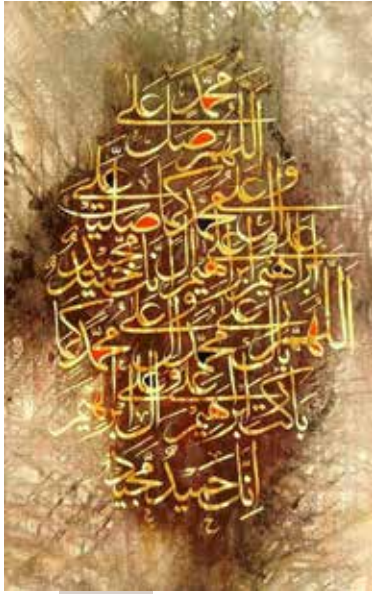 اللهم صل على محمد
وعلى آل محمد كما صليت على
إبراهيم وعلى آل إبراهيم إنك حميد مجيد
اللهم بارك على محمد وعلى آل محمد كما
باركت على إبراهيم وعلى آل إبراهيم
إنك حميد مجيد